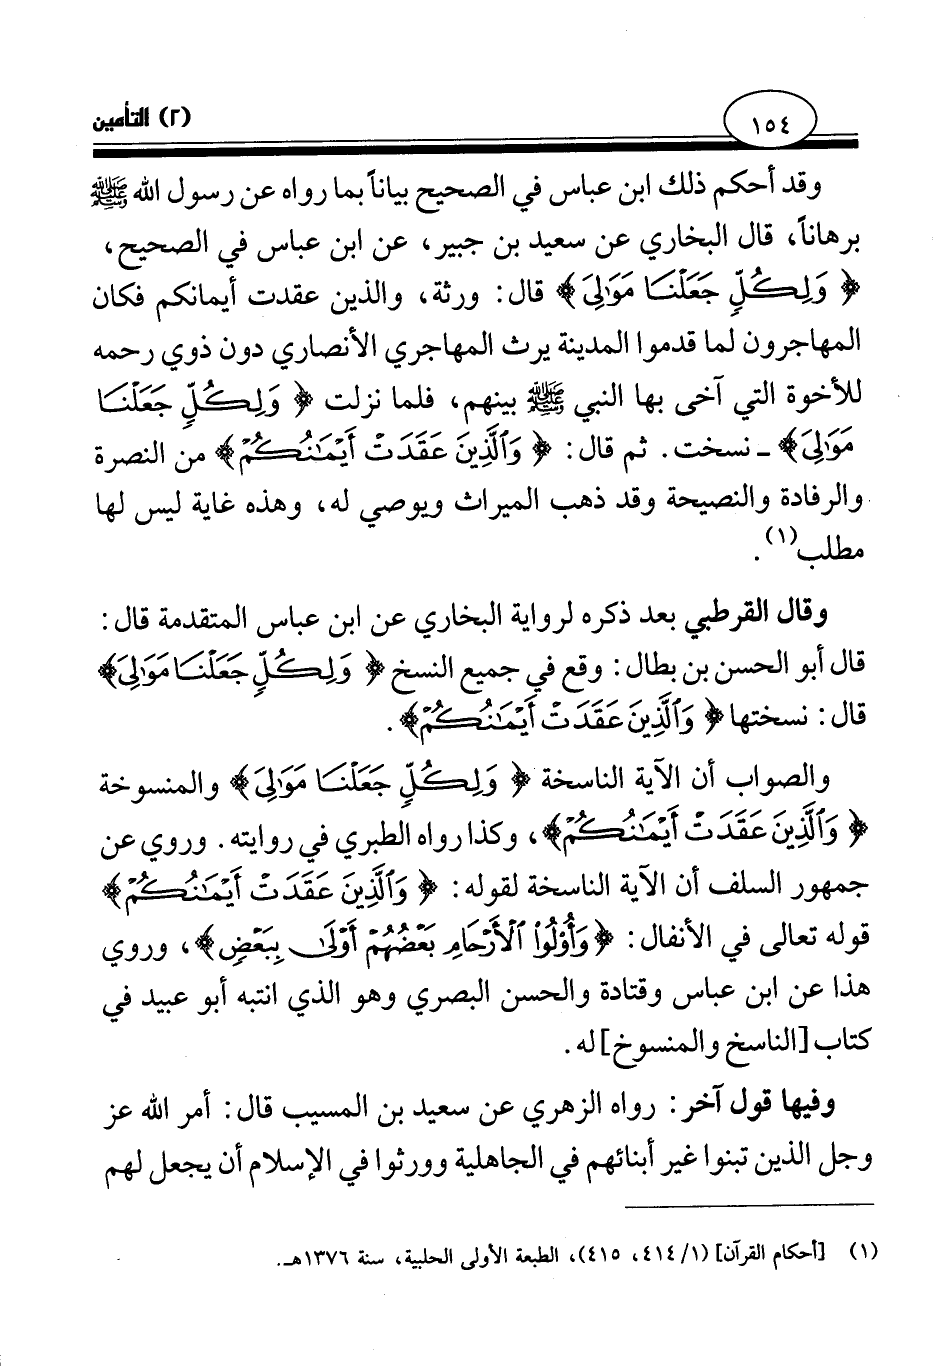 (٢) التأمين
١٥٤
وقد أحكم ذلك ابن عباس في الصحيح بياناً بما رواه عن رسول الله ﷺ
برهاناً، قال البخاري عن سعيد بن جبير، عن ابن عباس في الصحيح،
﴿ وَلِكُلٍّ جَعَلْنَا مَوَٰلِىَ ﴾ قال: ورثة، والذين عقدت أيمانكم فكان
المهاجرون لما قدموا المدينة يرث المهاجري الأنصاري دون ذوي رحمه
للأخوة التي آخى بها النبي ﷺ بينهم، فلما نزلت ﴿ وَلِكُلٍّ جَعَلْنَا
مَوَٰلِىَ ﴾ ـ نسخت. ثم قال: ﴿ وَٱلَّذِينَ عَقَدَتْ أَيْمَٰنُكُمْ ﴾ من النصرة
والرفادة والنصيحة وقد ذهب الميراث ويوصي له، وهذه غاية ليس لها
مطلب(١).
وقال القرطبي بعد ذكره لرواية البخاري عن ابن عباس المتقدمة قال:
قال أبو الحسن بن بطال: وقع في جميع النسخ ﴿ وَلِكُلٍّ جَعَلْنَا مَوَٰلِىَ ﴾
قال: نسختها ﴿ وَٱلَّذِينَ عَقَدَتْ أَيْمَٰنُكُمْ ﴾.
والصواب أن الآية الناسخة ﴿ وَلِكُلٍّ جَعَلْنَا مَوَٰلِىَ ﴾ والمنسوخة
﴿ وَٱلَّذِينَ عَقَدَتْ أَيْمَٰنُكُمْ ﴾، وكذا رواه الطبري في روايته. وروي عن
جمهور السلف أن الآية الناسخة لقوله: ﴿ وَٱلَّذِينَ عَقَدَتْ أَيْمَٰنُكُمْ ﴾
قوله تعالى في الأنفال: ﴿ وَأُوْلُواْ ٱلْأَرْحَامِ بَعْضُهُمْ أَوْلَىٰ بِبَعْضٍ ﴾، وروي
هذا عن ابن عباس وقتادة والحسن البصري وهو الذي انتبه أبو عبيد في
كتاب [الناسخ والمنسوخ] له.
وفيها قول آخر: رواه الزهري عن سعيد بن المسيب قال: أمر الله عز
وجل الذين تبنوا غير أبنائهم في الجاهلية وورثوا في الإسلام أن يجعل لهم
(١) [أحكام القرآن] (١/ ٤١٤، ٤١٥)، الطبعة الأولى الحلبية، سنة ١٣٧٦هـ.